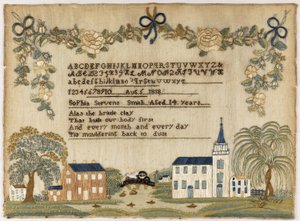 ABCDEFGHIJKLMNOPQRSTUVWXYZ&
abcdefghiklmnopqrstuvwxyz
12345678910 Aug 5 1818
Sophia Stevens Smith Aged 14 years
Alas the brittle clay
That built our body first
And every month and every day
Tis mouldering back to dust